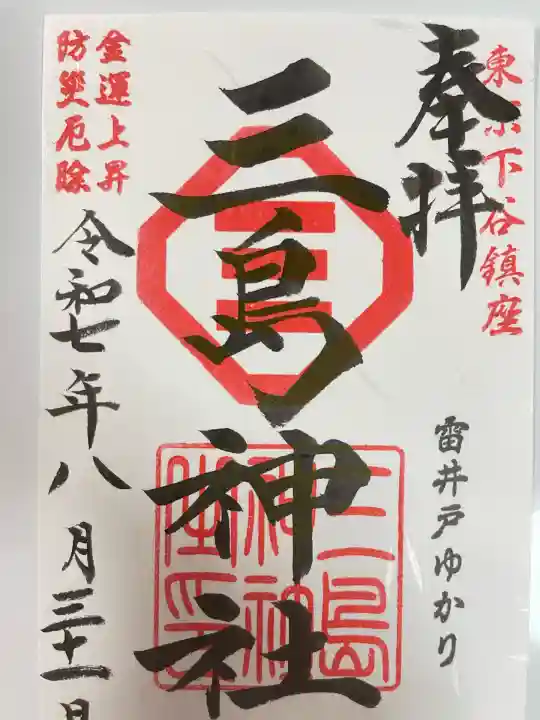 東京下谷鎮座
奉拝
雷井戸ゆかり
三島神社
金運上昇
防災厄除
令和七年八月三十一日